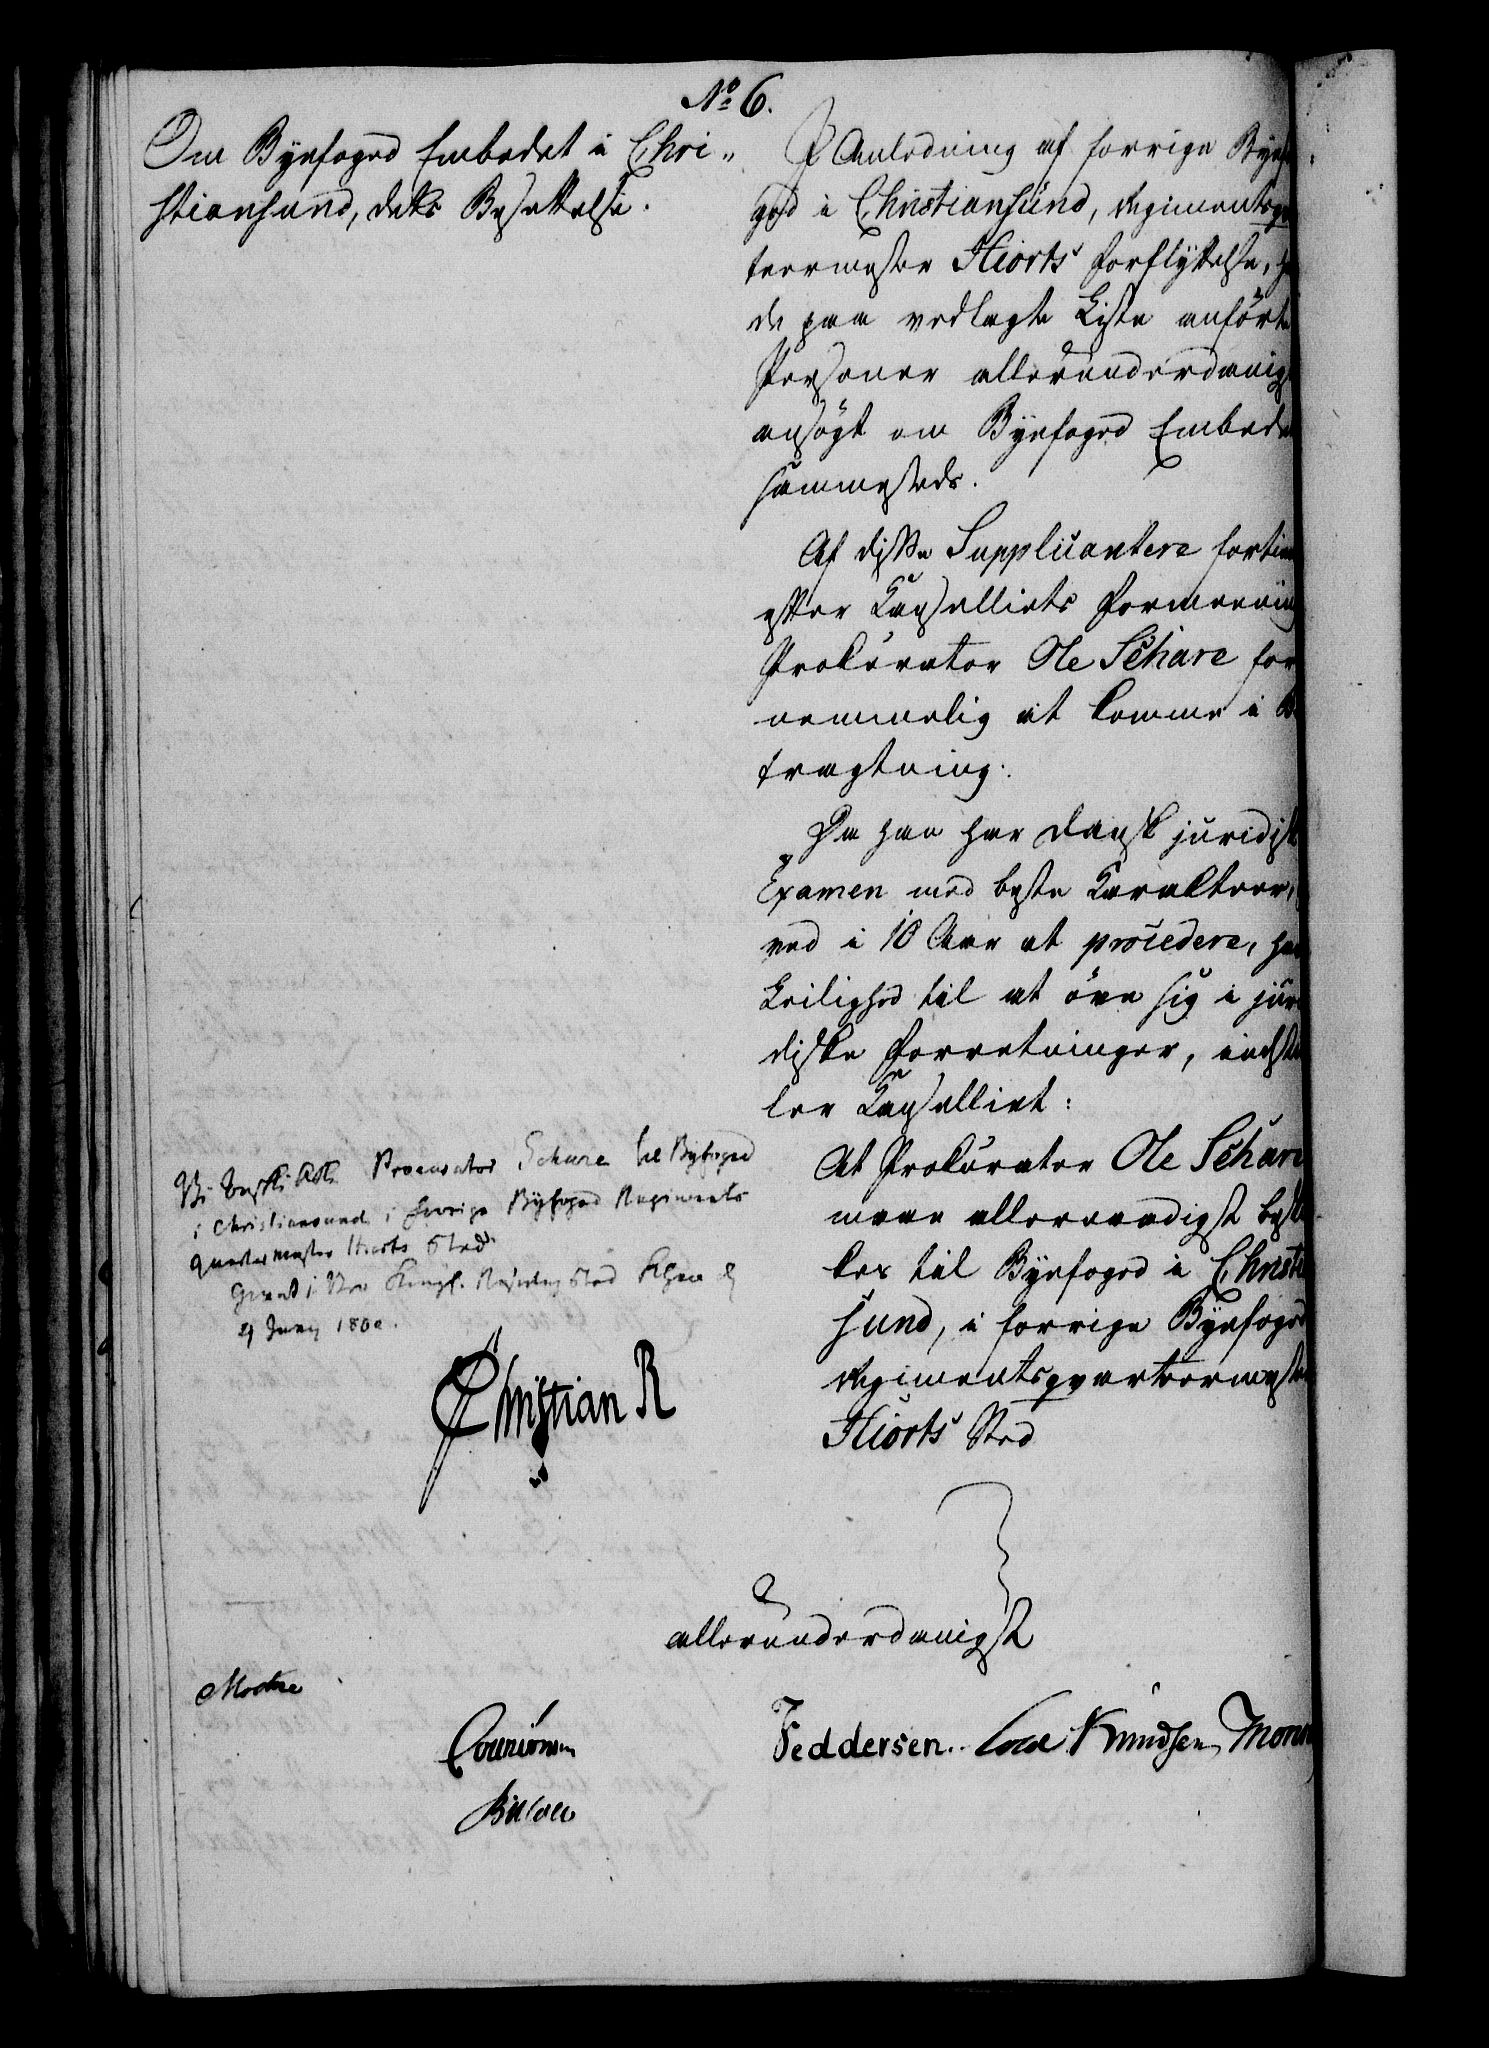 No 6.
Om Byefoged Embedet i Chri-
stiansund, dets Besættelse.
I Anledning af forrige Byefo
ged i Christiansund, Regimentsqvar
teermester Hiorts Forflyttelse, ha
de paa vedlagte Liste anførte
Personer allerunderdanigst
ansøgt om Byefoged Embedet
sammesteds.
Af disse Supplicantere fortiener
efter Cancelliets Formeening
Prokurator Ole Schare for
nemmelig at komme i Be
tragtning.
Da han har dansk juridisk
Examen med beste Karakteer,
ved i 10 Aar at procedere, hav
Leilighed til at øve sig i juri
diske Forretninger, indstil
ler Cancelliet:
At Prokurator Ole Schare
maae allernaadigst bestil
les til Byefoged i Christi
sund, i forrige Byefoged
Regimentsqvarteermester
Hiorts Sted
Vi Procurator Schare til Byfoged
i Christiansund i forrige Byfoged Regiments
Quarteermester Hiorts Sted
Givet i Vor Kongl. Residentz Stad Khavn d
Juny 180
Christian R
allerunderdanigst
Moltke
Bülow
Feddersen. Knudsen Monrad